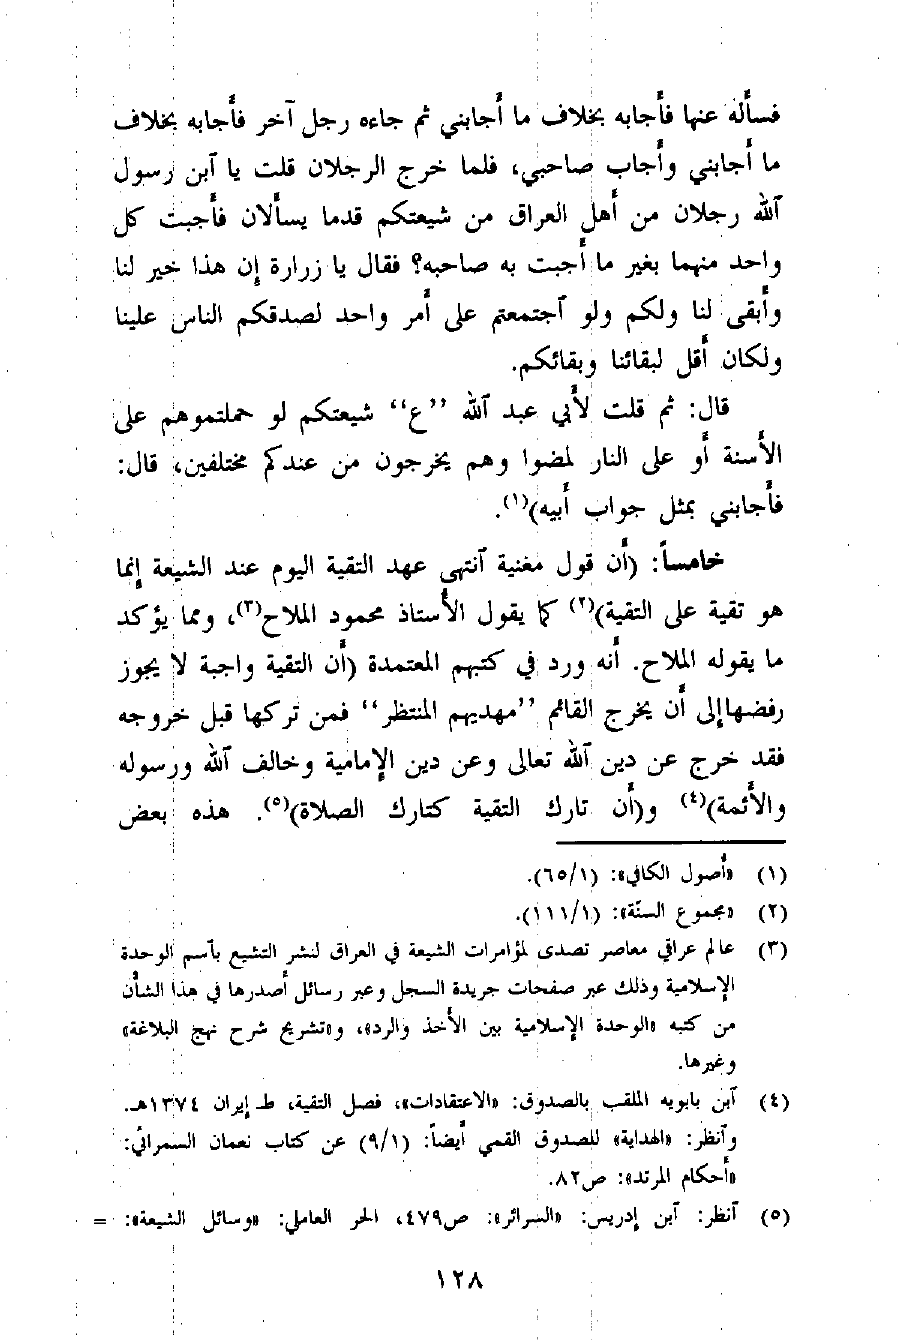 فسأله عنها فأجابه بخلاف ما أجابني ثم جاءه رجل آخر فأجابه بخلاف
ما أجابني وأجاب صاحبي، فلما خرج الرجلان قلت يا آبن رسول
آلله رجلان من أهل العراق من شيعتكم قدما يسألان فأجبت كل
واحد منهما بغير ما أجبت به صاحبه؟ فقال يا زرارة إن هذا خير لنا
وأبقى لنا ولكم ولو آجتمعتم على أمر واحد لصدقكم الناس علينا
ولكان أقل لبقائنا وبقائكم.
قال: ثم قلت لأبي عبد آلله ”ع“ شيعتكم لو حملتموهم على
الأسنة أو على النار لمضوا وهم يخرجون من عندكم مختلفين، قال:
فأجابني بمثل جواب أبيه)(١).
خامساً: (أن قول مغنية آنتهى عهد التقية اليوم عند الشيعة إنما
هو تقية على التقية)(٢) كما يقول الأستاذ محمود الملاح(٣)، ومما يؤكد
ما يقوله الملاح. أنه ورد في كتبهم المعتمدة (أن التقية واجبة لا يجوز
رفضها إلى أن يخرج القائم ”مهديهم المنتظر“ فمن تركها قبل خروجه
فقد خرج عن دين آلله تعالى وعن دين الإمامية وخالف آلله ورسوله
والأئمة)(٤) و(أن تارك التقية كتارك الصلاة)(٥). هذه بعض
(١) «أصول الكافي»: (٦٥/١).
(٢) «مجموع السنّة»: (١١١/١).
(٣) عالم عراقي معاصر تصدى لمؤامرات الشيعة في العراق لنشر التشيع بآسم الوحدة
الإسلامية وذلك عبر صفحات جريدة السجل وعبر رسائل أصدرها في هذا الشأن
من كتبه «الوحدة الإسلامية بين الأخذ والرد»، و«تشريح شرح نهج البلاغة»
وغيرها.
(٤) آبن بابويه الملقب بالصدوق: «الاعتقادات»، فصل التقية، ط إيران ١٣٧٤هـ.
وآنظر: «الهداية» للصدوق القمي أيضاً: (٩/١) عن كتاب نعمان السمرائي:
«أحكام المرتد»: ص٨٢.
(٥) آنظر: آبن إدريس: «السرائر»: ص٤٧٩، الحر العاملي: «وسائل الشيعة»: =
١٢٨